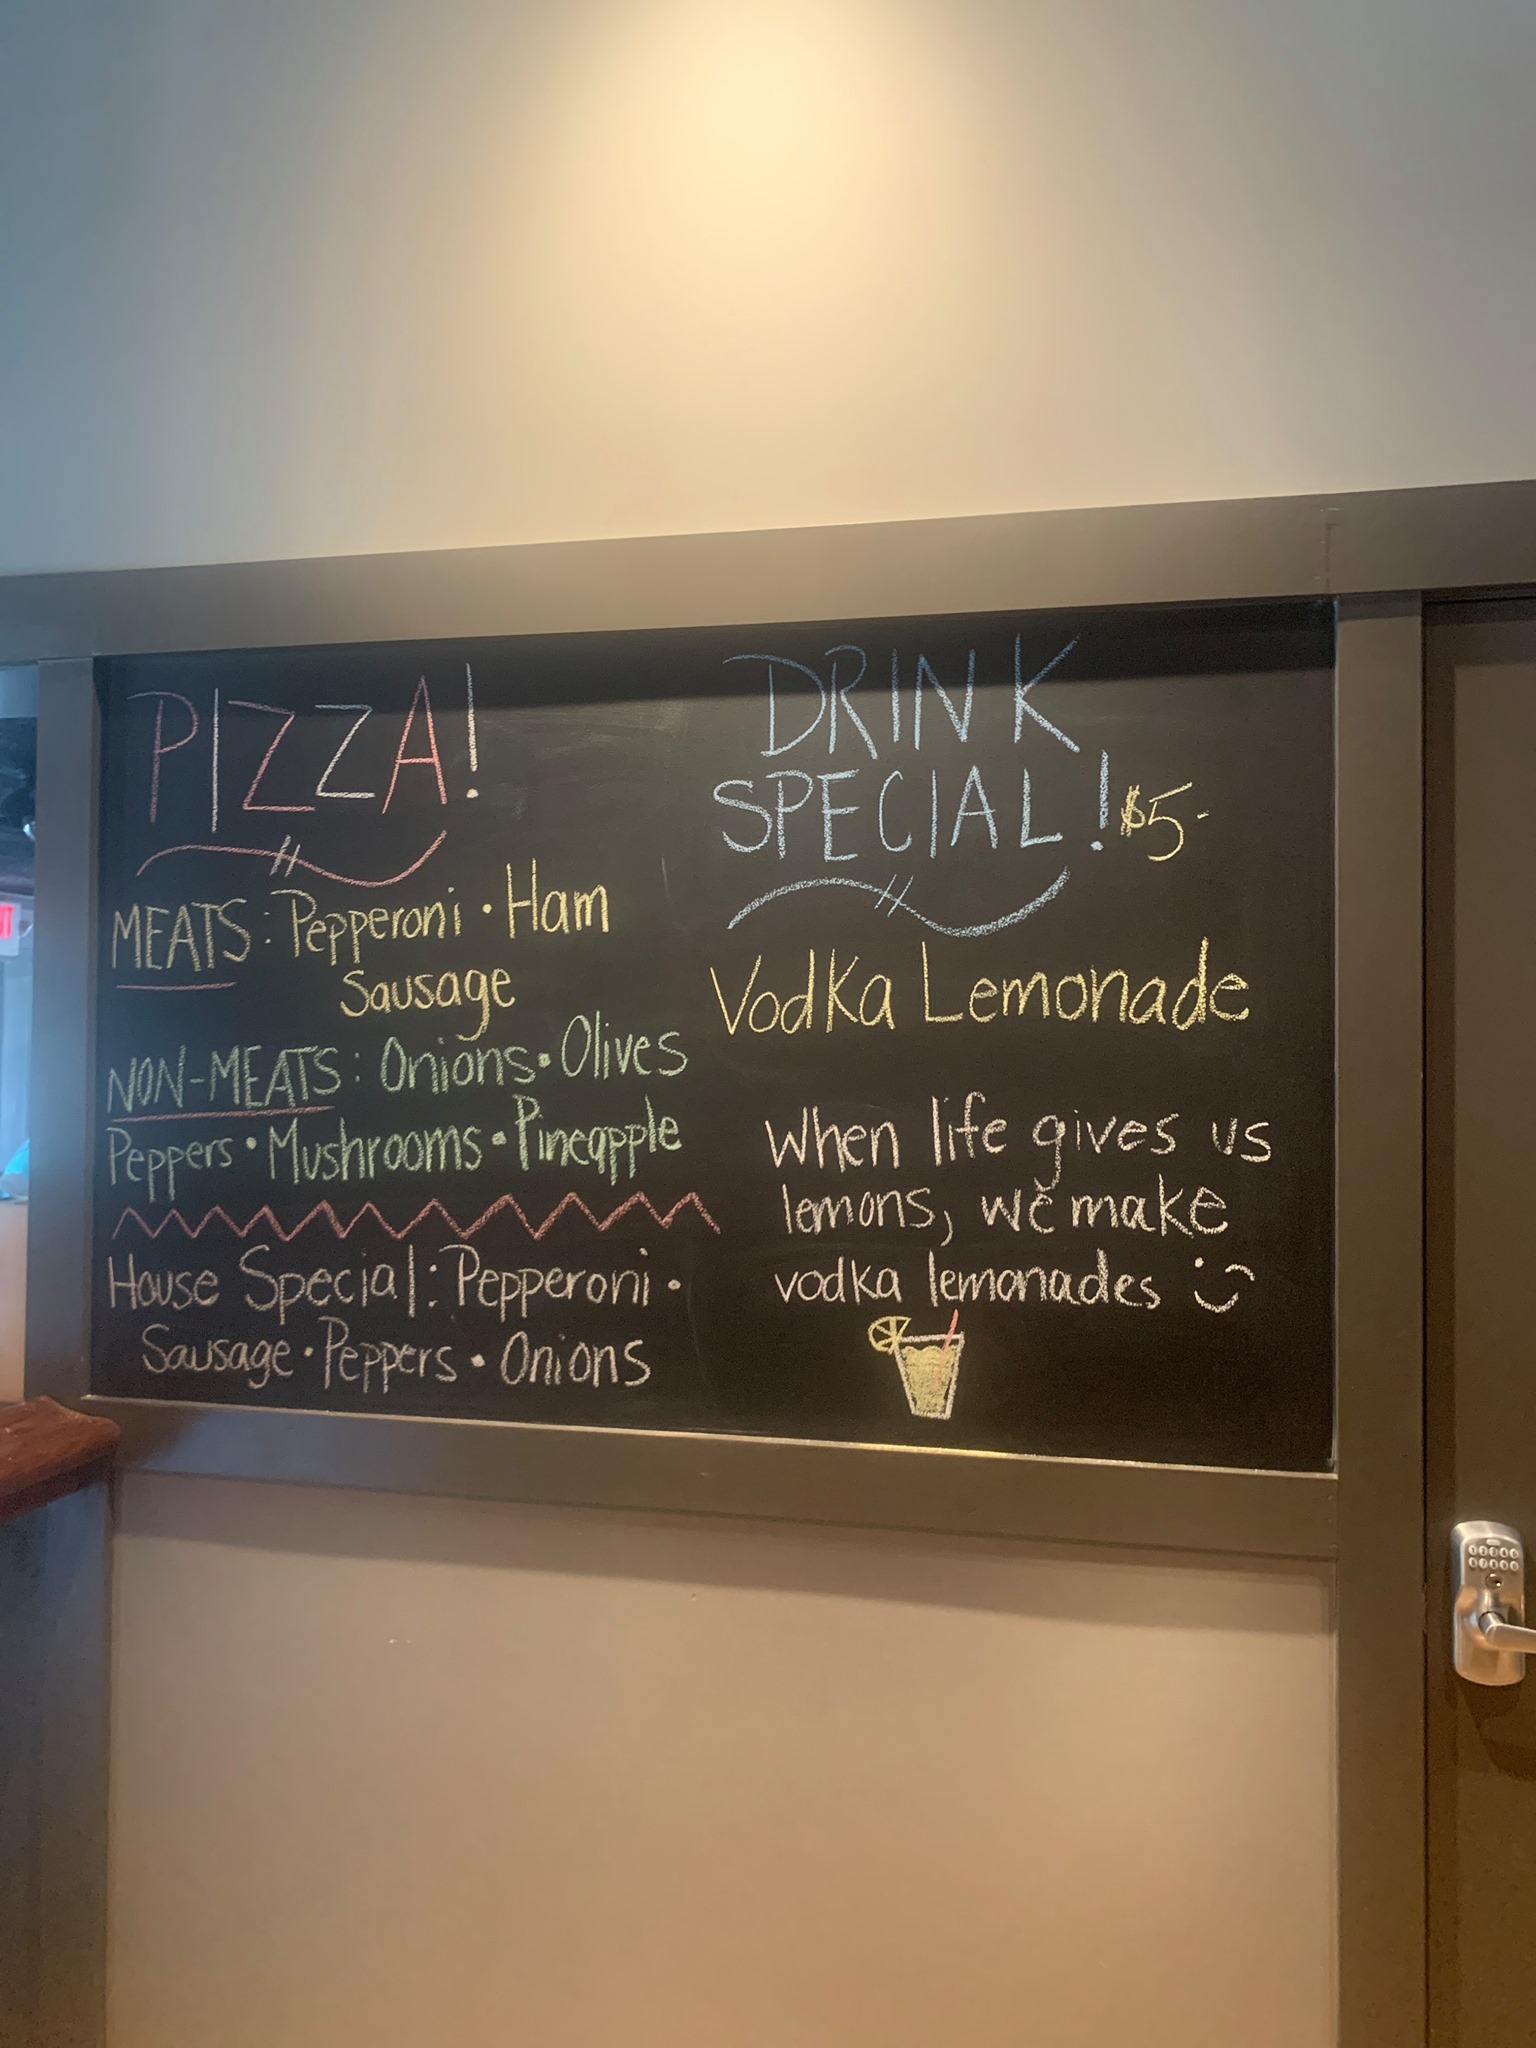 PIZZA!
MEATS: Pepperoni • Ham
Sausage
NON-MEATS: Onions • Olives
Peppers • Mushrooms • Pineapple
House Special: Pepperoni •
Sausage • Peppers • Onions
DRINK
SPECIAL! $5-
Vodka Lemonade
When life gives us
lemons, we make
vodka lemonades